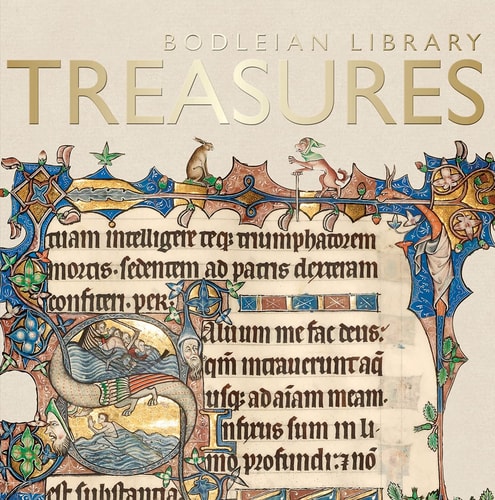 BODLEIAN LIBRARY
TREASURES
tuam intelligere teq; triumphatorem
mortis. sedentem ad patris dexteram
confiteri. per;
Saluum me fac deus:
qm̄ intrauerunt aq̄
usq; ad aīam meam.
Infixus sum in li
mo profundi: ⁊ nō
est substantia